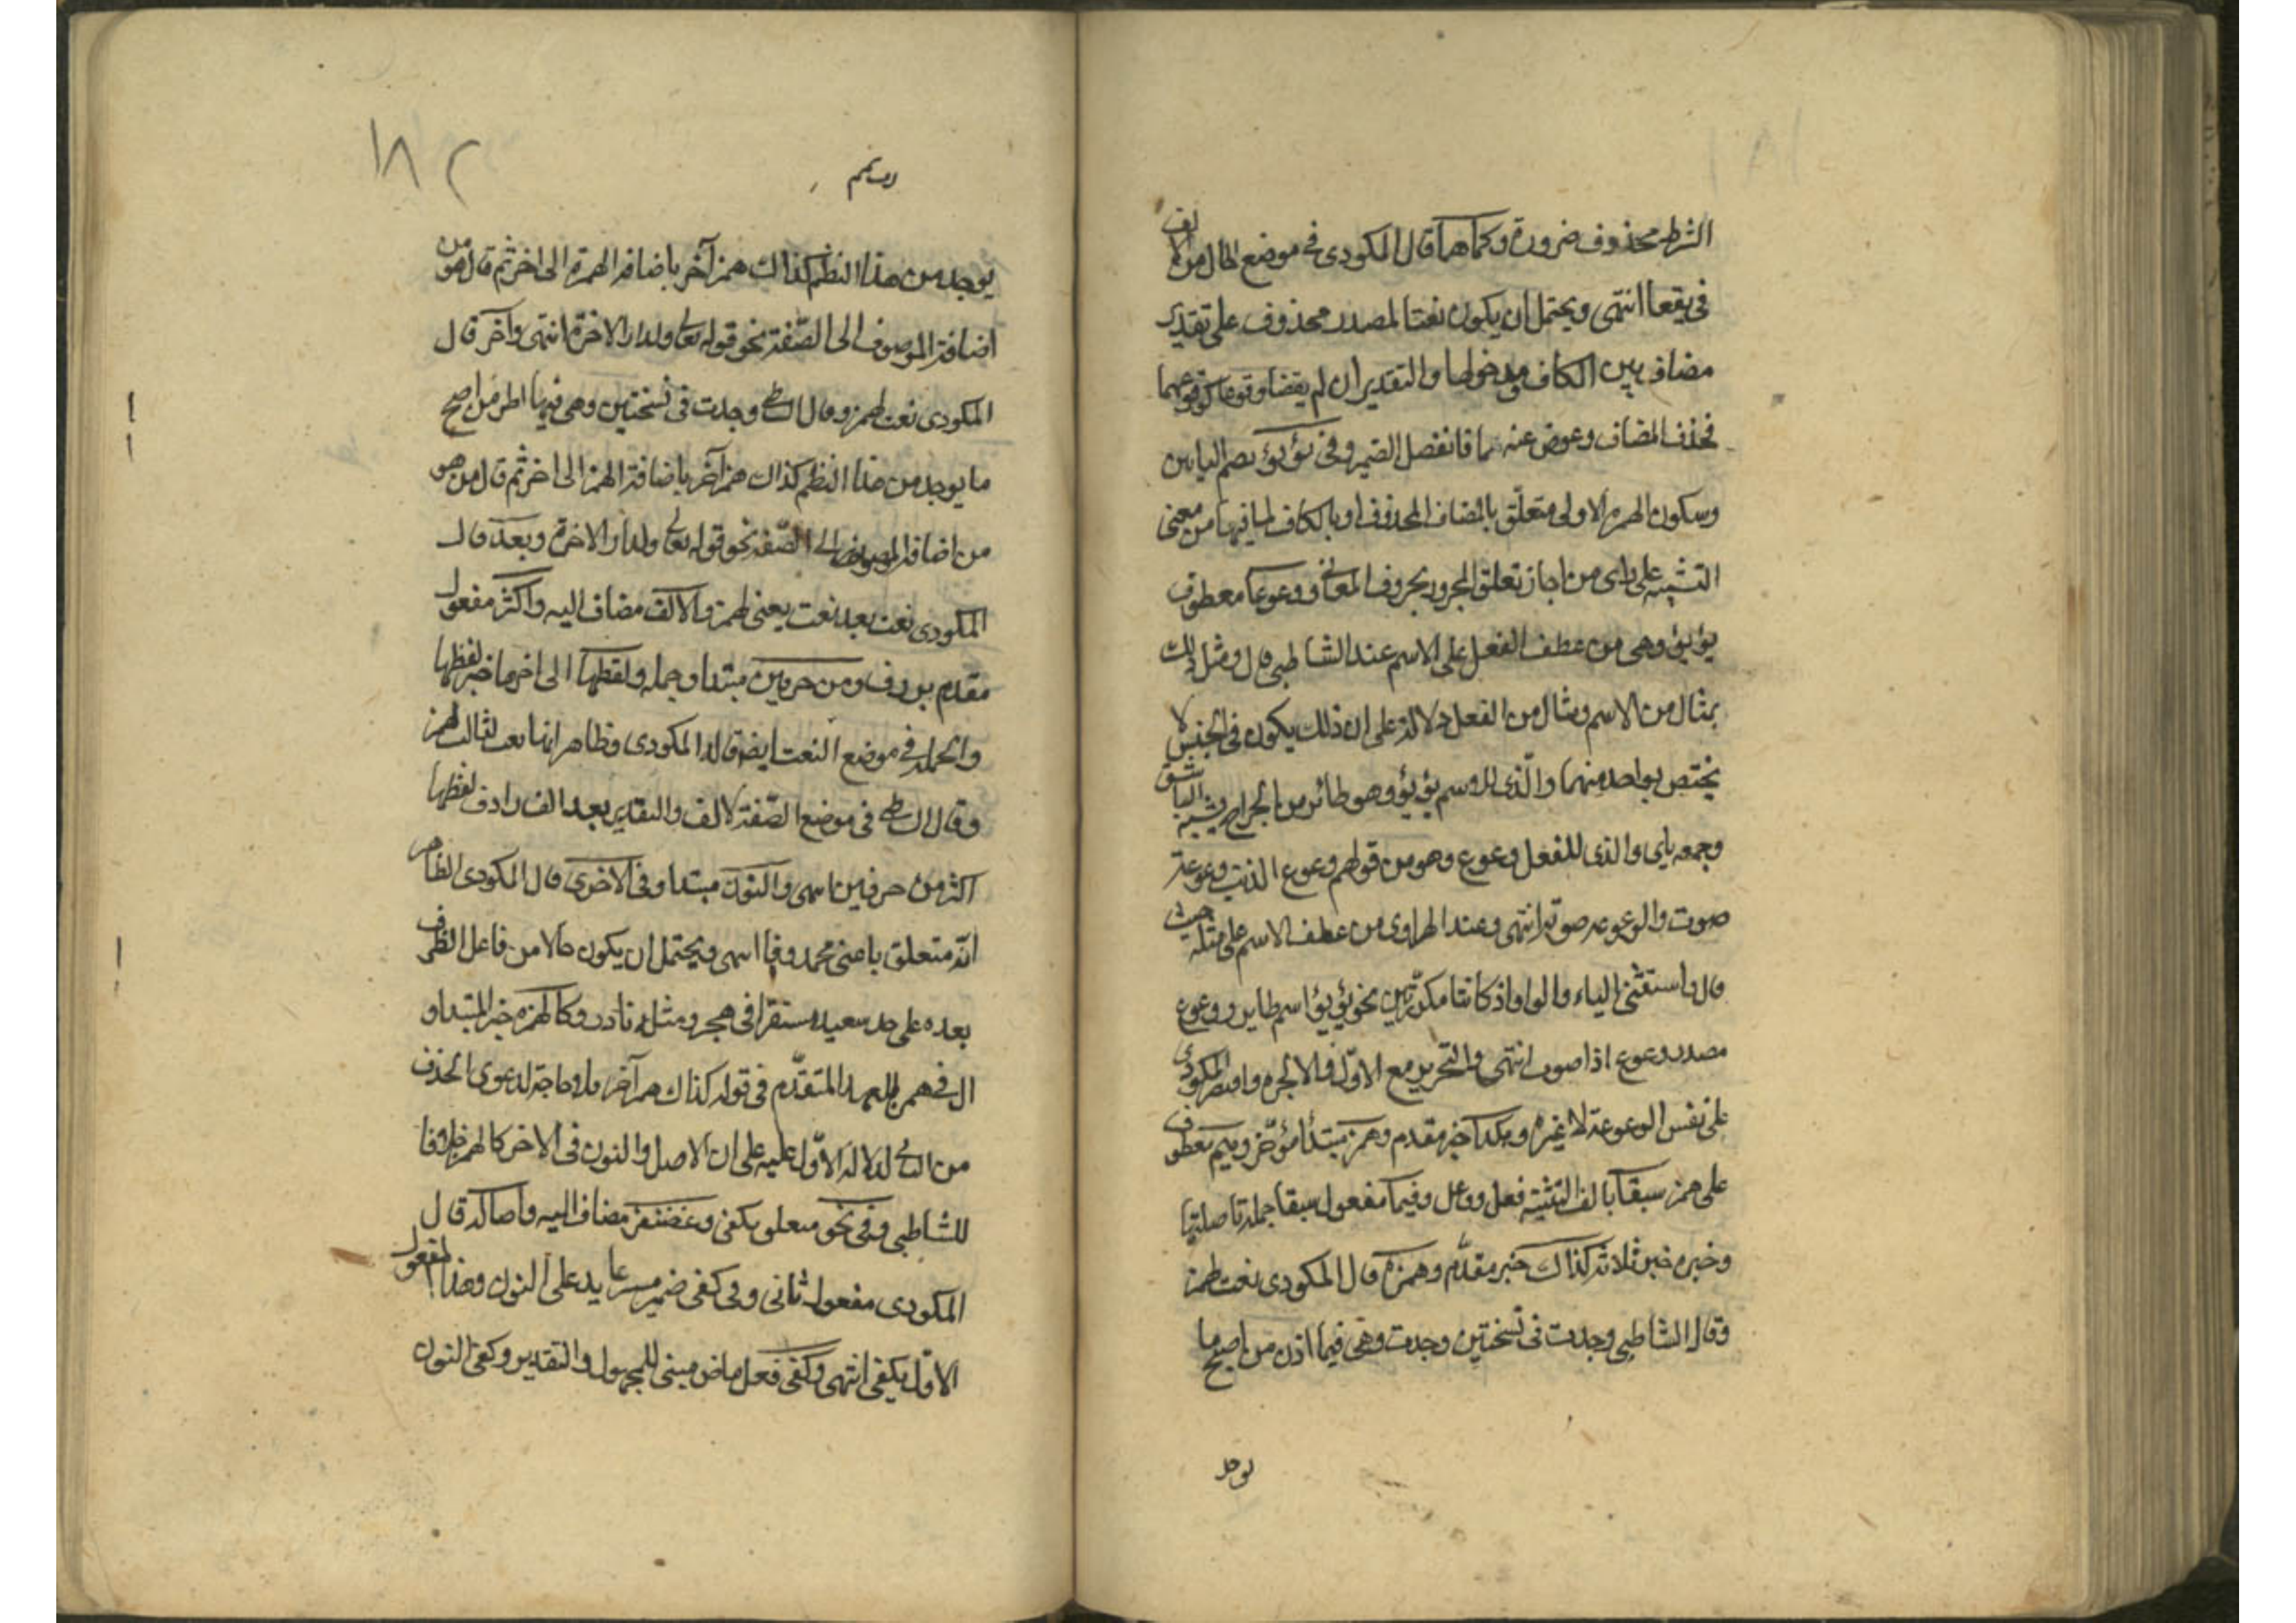 الشرط محذوف ضرورة وكما هما قال المكودى فى موضع الحال من الالف
فى يقعا انتهى ويحتمل ان يكون نعتا لمصدر محذوف على تقدير
مضاف بين الكاف ومدخولها والتقدير ان لم يقعا وقوعا كوقوعهما
فحذف المضاف وعوض عنه ما فانفصل الضمير وفى يؤيؤ بضم اليايين
وسكون الهمزه الاولى متعلق بالمضاف المحذوف او بالكاف لما فيها من معنى
التشبيه على راى من اجاز تعلق المجرور بحروف المعانى ووعوعا معطوف
يؤيؤ وهى من عطف الفعل على الاسم عند الشاطبى قال ومثل ذلك
بمثال من الاسم ومثال من الفعل دلالة على ان ذلك يكون فى الجنس لا
يختص بواحد منهما والذى للاسم يؤيؤ وهو طائر من الجراح يشبه الباشق
وجمعه يآيى والذى للفعل وعوع وهو من قولهم وعوع الذئب وعوعة
صوت والوعوعه صوته انتهى وعند الهوارى من عطف الاسم على مثله حيث
قال واستثنى الياء والواو اذ كانتا مكررتين نحو يؤيؤ اسم طاير ووعوع
مصدر وعوع اذا صوت انتهى والتحرير مع الاول والا لجره واقتصر المكودى
على نفس الوعوعة لا غيره وهكذا خبر مقدم وهمز مبتدأ مؤخر وميم معطوف
على همز سبقا بالف التثنية فعل وفاعل وفيما مفعول سبقا جملة تاصيلها
وخبره خبر ثلاثة كذاك خبر مقدم وهمزه قال المكودى نعت لهمز
وقال الشاطبى وجدت فى نسختين وجدت وهى فيما اذن من اصح ما
يوجد
١٨٢
يوجد من هذا النظم كذاك همز آخر باضافة الهمزة الى اخر ثم قال هو من
اضافة الموصوف الى الصفة نحو قوله تعالى ولدار الاخرة انتهى وآخر قال
المكودى نعت لهمز وقال الشاطبى وجدت فى نسختين وهى فيها اظن من اصح
ما يوجد من هذا النظم كذاك همز آخر باضافة الهمز الى اخر ثم قال من هو
من اضافة الموصوف الى الصفة نحو قوله تعالى ولدار الاخرة وبعد قال
المكودى نعت بعد نعت يعنى لهمز والالف مضاف اليه واكثر مفعول
مقدم بردف ومن حرفين مبتدا وجمله ولفظها الى اخرها خبر لفظها
والجملة فى موضع النعت ايضا قاله المكودى وظاهر انها نعت ثالث لهمز
وقال الشاطبى فى موضع الصفة لالف والتقدير بعد الف رادف لفظها
اكثر من حرفين انتهى والنون مبتدا وفى الاخرى قال المكودى الظاهر
انه متعلق باعنى محذوفا انتهى ويحتمل ان يكون حالا من فاعل الظرف
بعده على حد سعيد مستقرا فى هجر ومثله نادر وكالهمزه خبر المبتدا و
ال فى همز للعهد المتقدم فى قوله كذاك همز آخر ولا حاجة لدعوى الحذف
من الثانى لدلالة الاول عليه على ان الاصل والنون فى الاخر كالهمز خلافا
للشاطبى وفى نحو متعلق بكفى وغضنفر مضاف اليه واصالة قال
المكودى مفعول ثانى وفى كفى ضمير مستتر عايد على النون وهذا المفعول
الاول بكفى انتهى وكفى فعل ماض مبنى للمجهول والتقدير وكفى النون